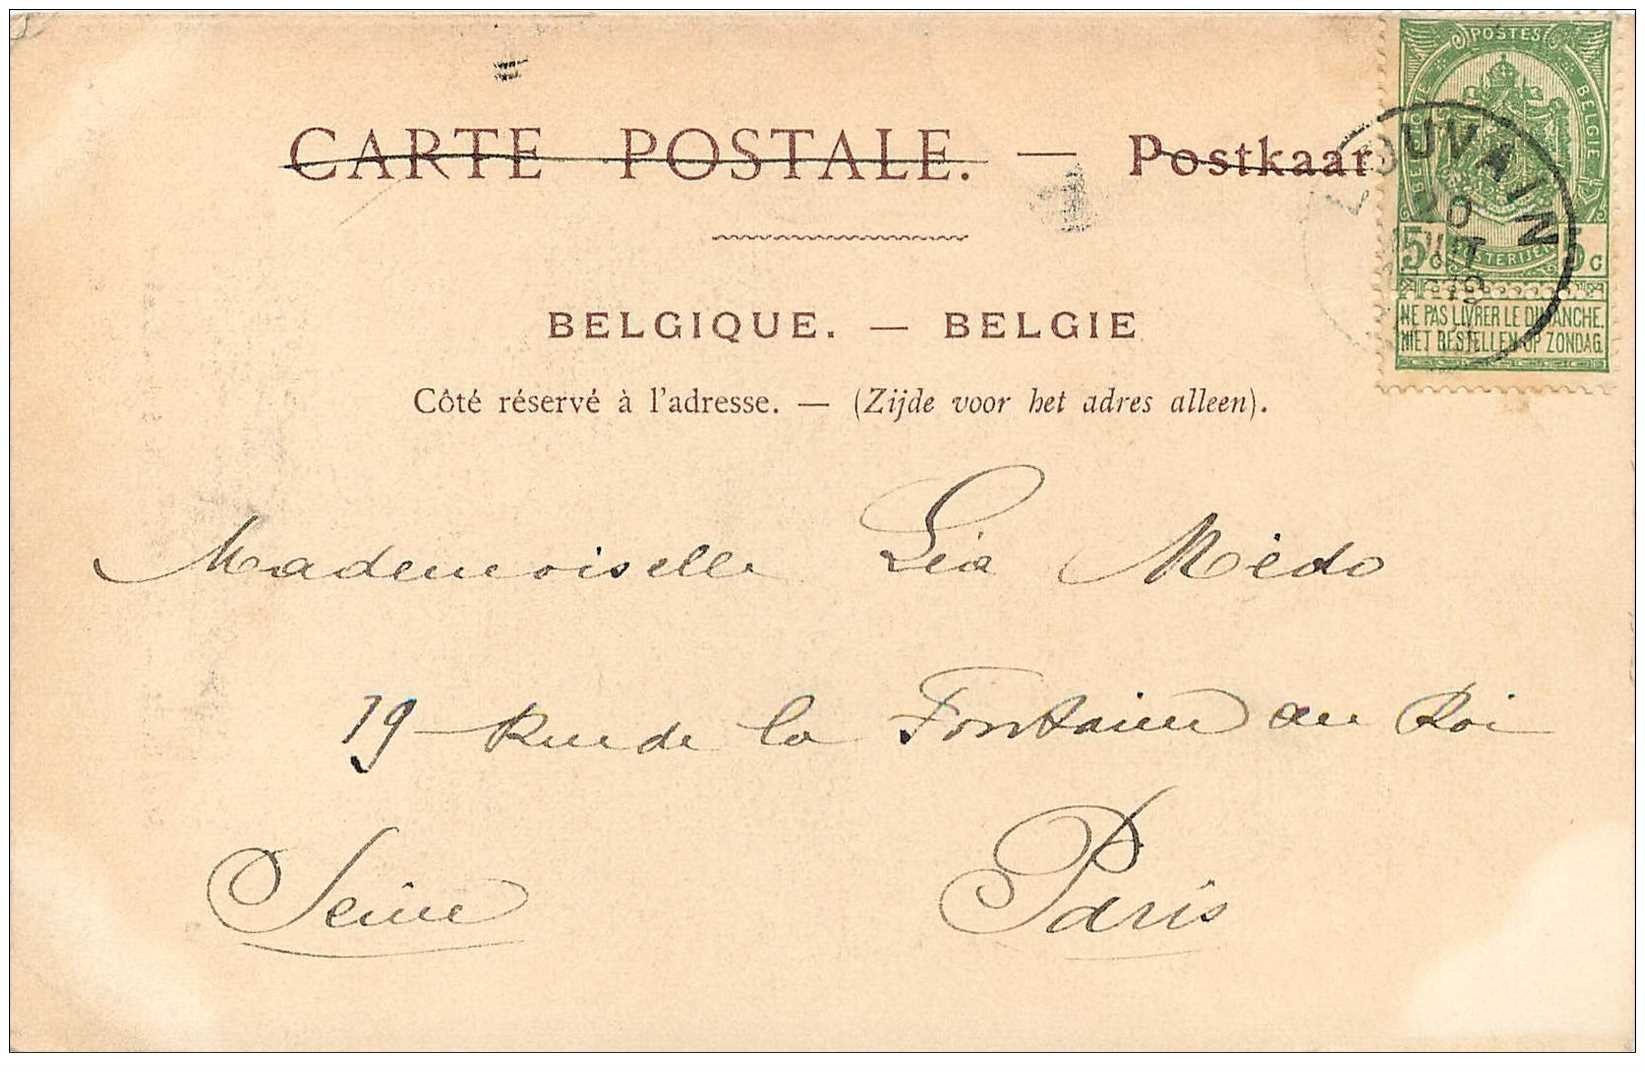 CARTE POSTALE. — Postkaar
POSTES
BELGIQUE BELGIE
POSTERIJEN
5c 5c
NE PAS LIVRER LE DIMANCHE.
NIET BESTELLEN OP ZONDAG.
LOUVAIN
BELGIQUE. — BELGIE
Côté réservé à l'adresse. — (Zijde voor het adres alleen).
Mademoiselle Léa Médo
19 Rue de la Fontaine au Roi
Seine Paris